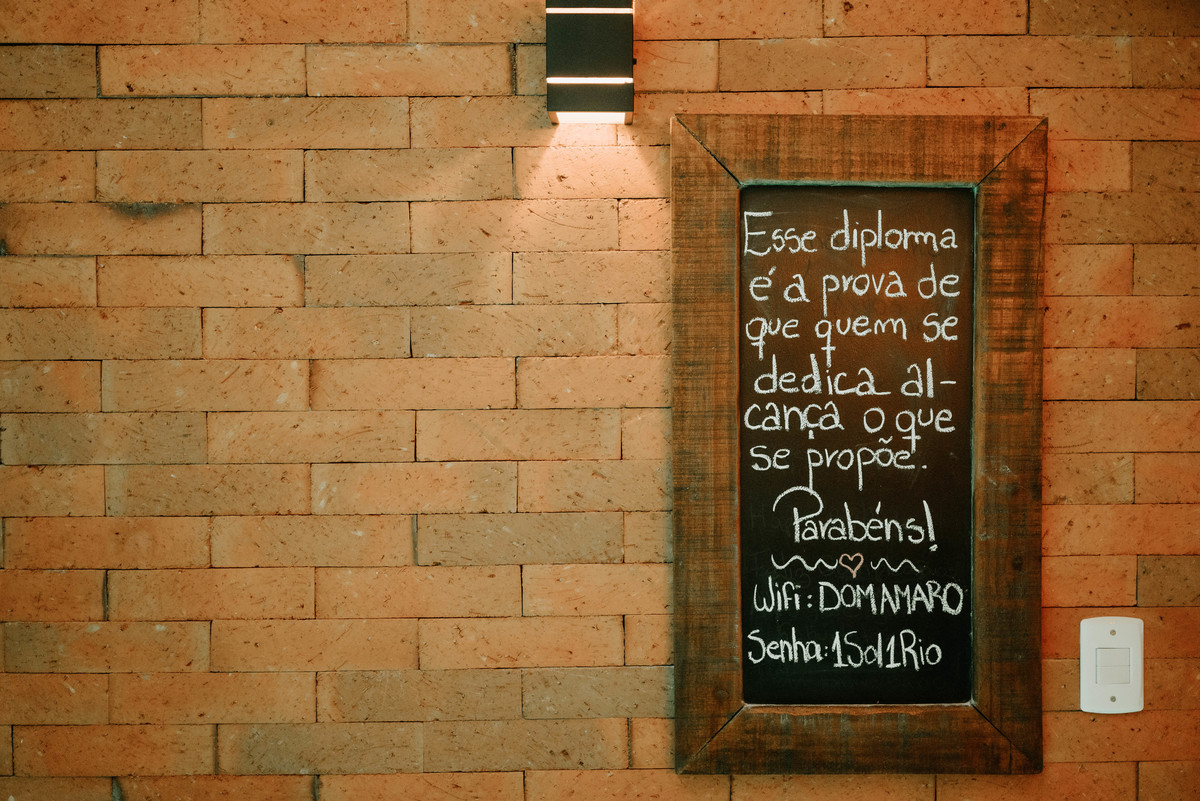 Esse diploma
é a prova de
que quem se
dedica al-
cança o que
se propõe.
Parabéns!
Wifi: DOMAMARO
Senha: 1Sol1Rio